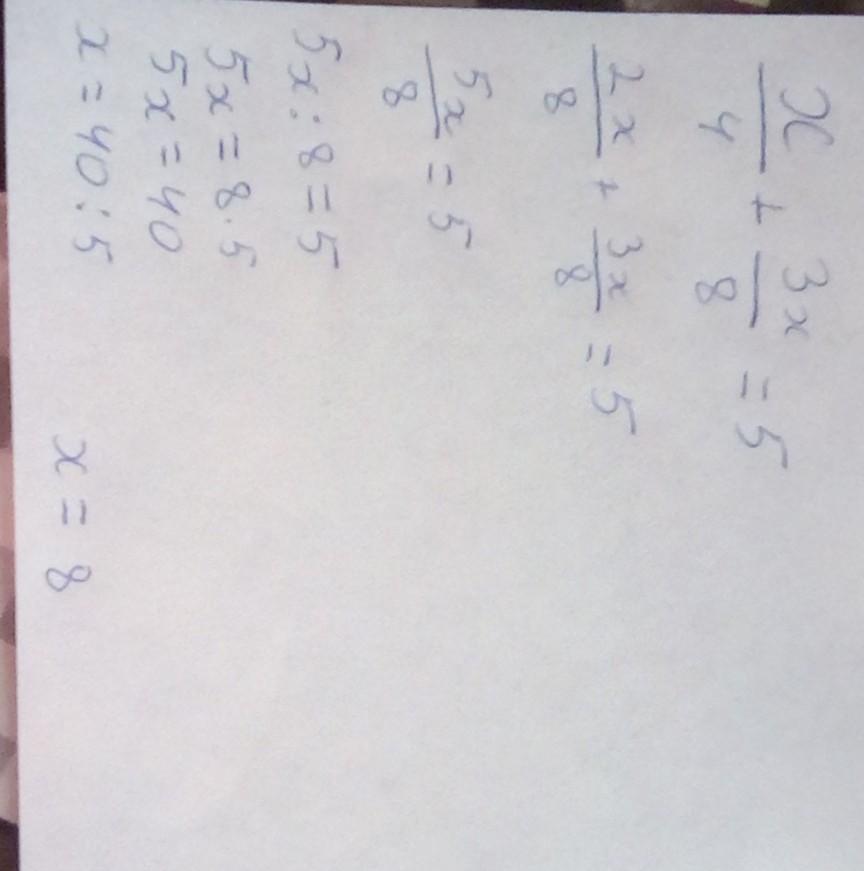 x/4 + 3x/8 = 5
2x/8 + 3x/8 = 5
5x/8 = 5
5x : 8 = 5
5x = 8 · 5
5x = 40
x = 40 : 5
x = 8